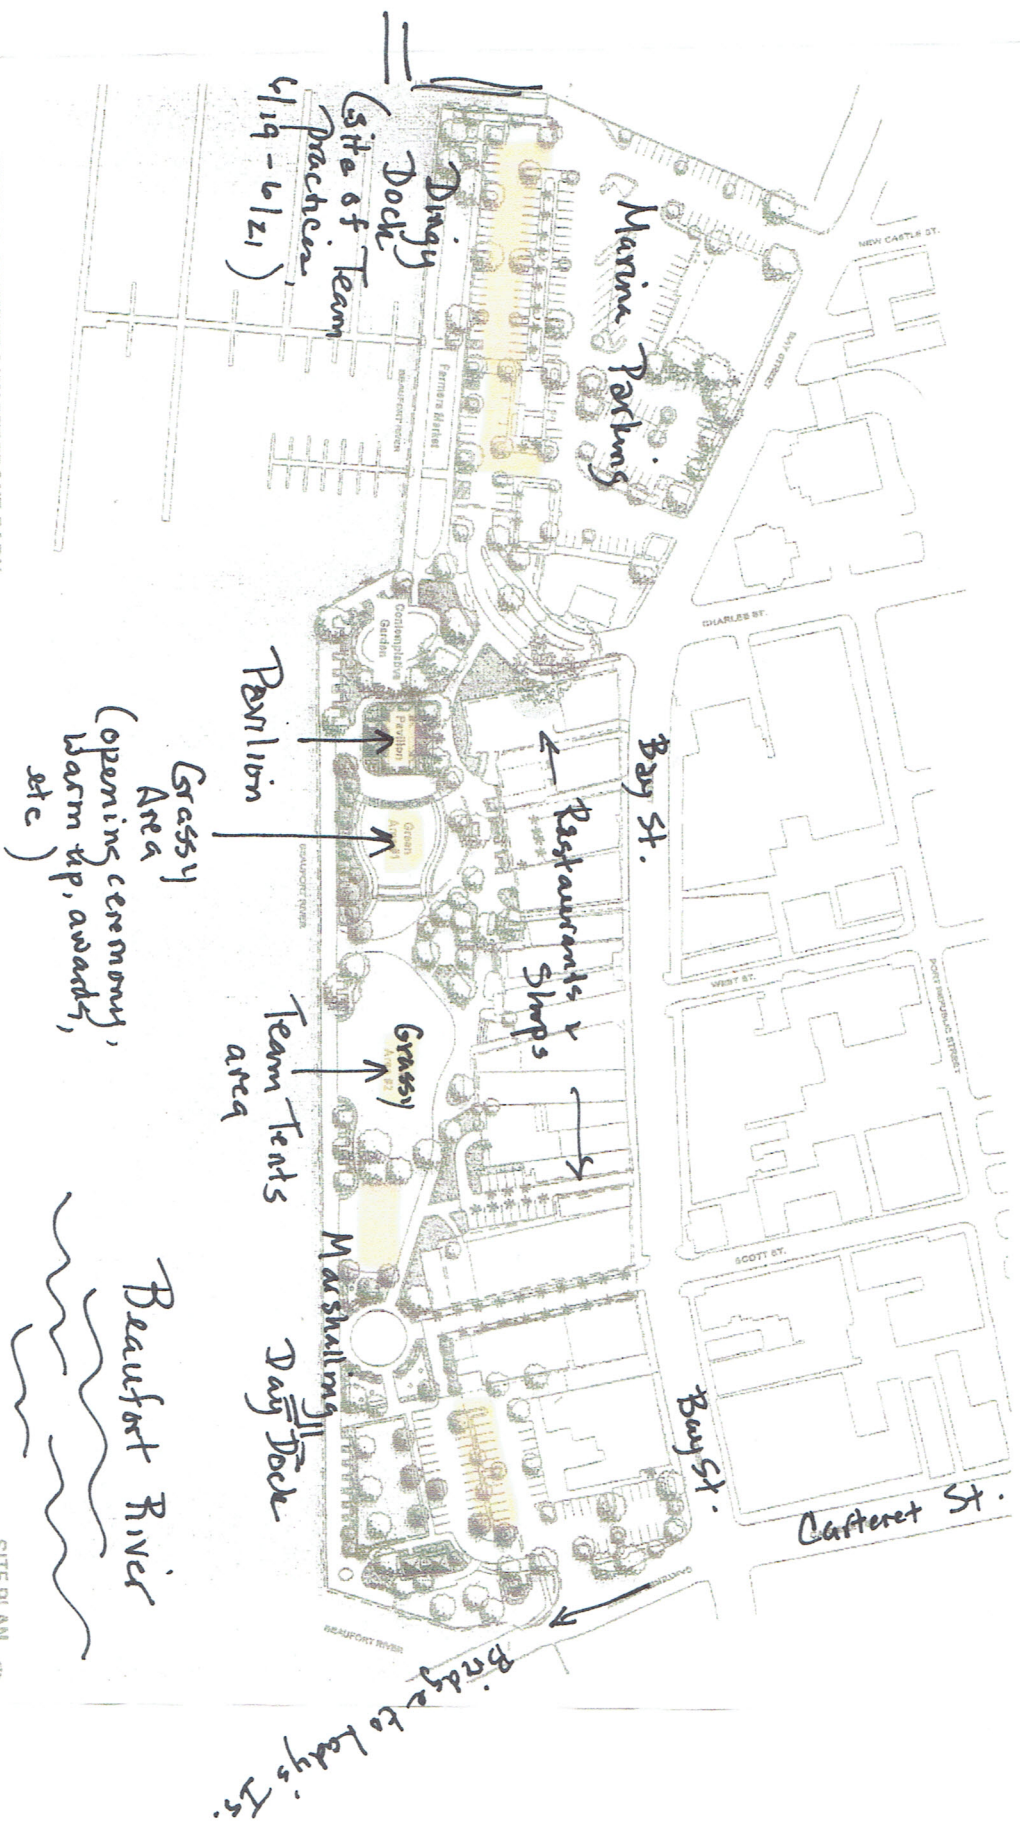 NEW CASTLE ST.
BAY STREET
Marina Parking
Dingy
Dock
(site of Team
practices,
6/19 - 6/21)
Farmers Market
BEAUFORT RIVER
CHARLES ST.
Contemplative
Garden
Pavilion
Pavilion
Bay St.
← Restaurants &
Shops →
Green
Grassy
Area
(opening ceremony,
warm up, awards,
etc)
BEAUFORT RIVER
WEST ST.
PORT REPUBLIC STREET
Grassy
Area #2
Team Tents
area
SCOTT ST.
Marshalling
Day Dock
Beaufort River
Bay St.
Carteret St.
BEAUFORT RIVER
Bridge to Lady's Is.
SITE PLAN